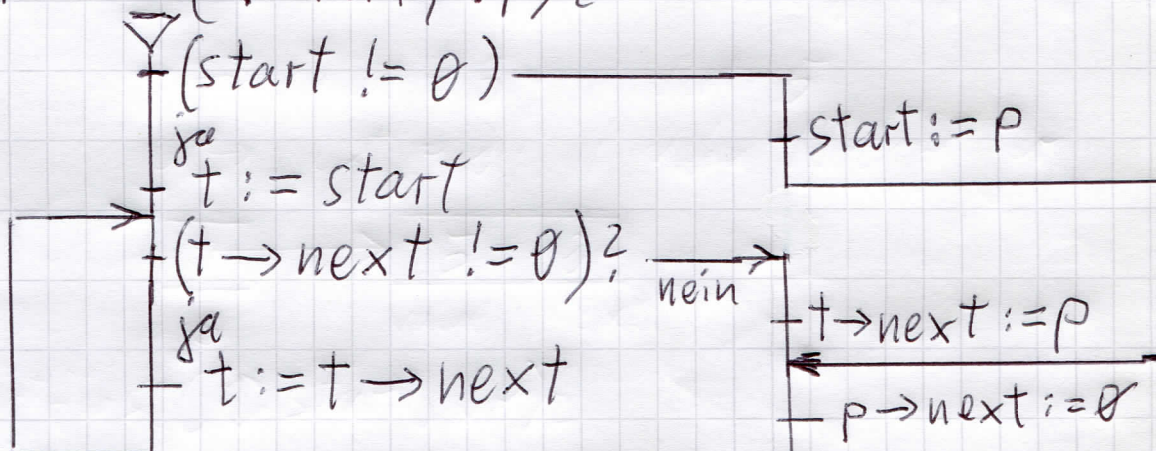 (start != 0)
start := p
ja
t := start
(t → next != 0)?
nein
t → next := p
ja
t := t → next
p → next := 0